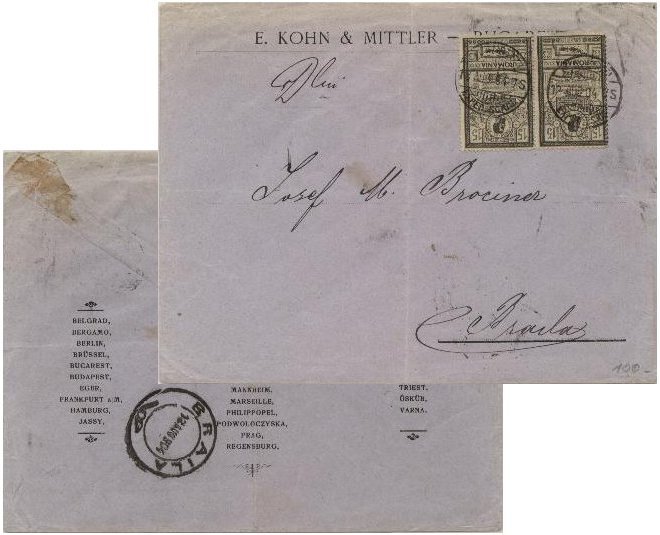 E. KOHN & MITTLER – BUCAREST
Dlui
Josef M. Brociner
Braila
100-
ROMANIA
ROMANIA
15
15
15
15
BELGRAD,
BERGAMO,
BERLIN,
BRÜSSEL,
BUCAREST,
BUDAPEST,
EGER,
FRANKFURT a/M,
HAMBURG,
JASSY,
MANNHEIM,
MARSEILLE,
PHILIPPOPEL,
PODWOLOCZYSKA,
PRAG,
REGENSBURG,
TRIEST,
ÜSKÜB,
VARNA.
BRAILA